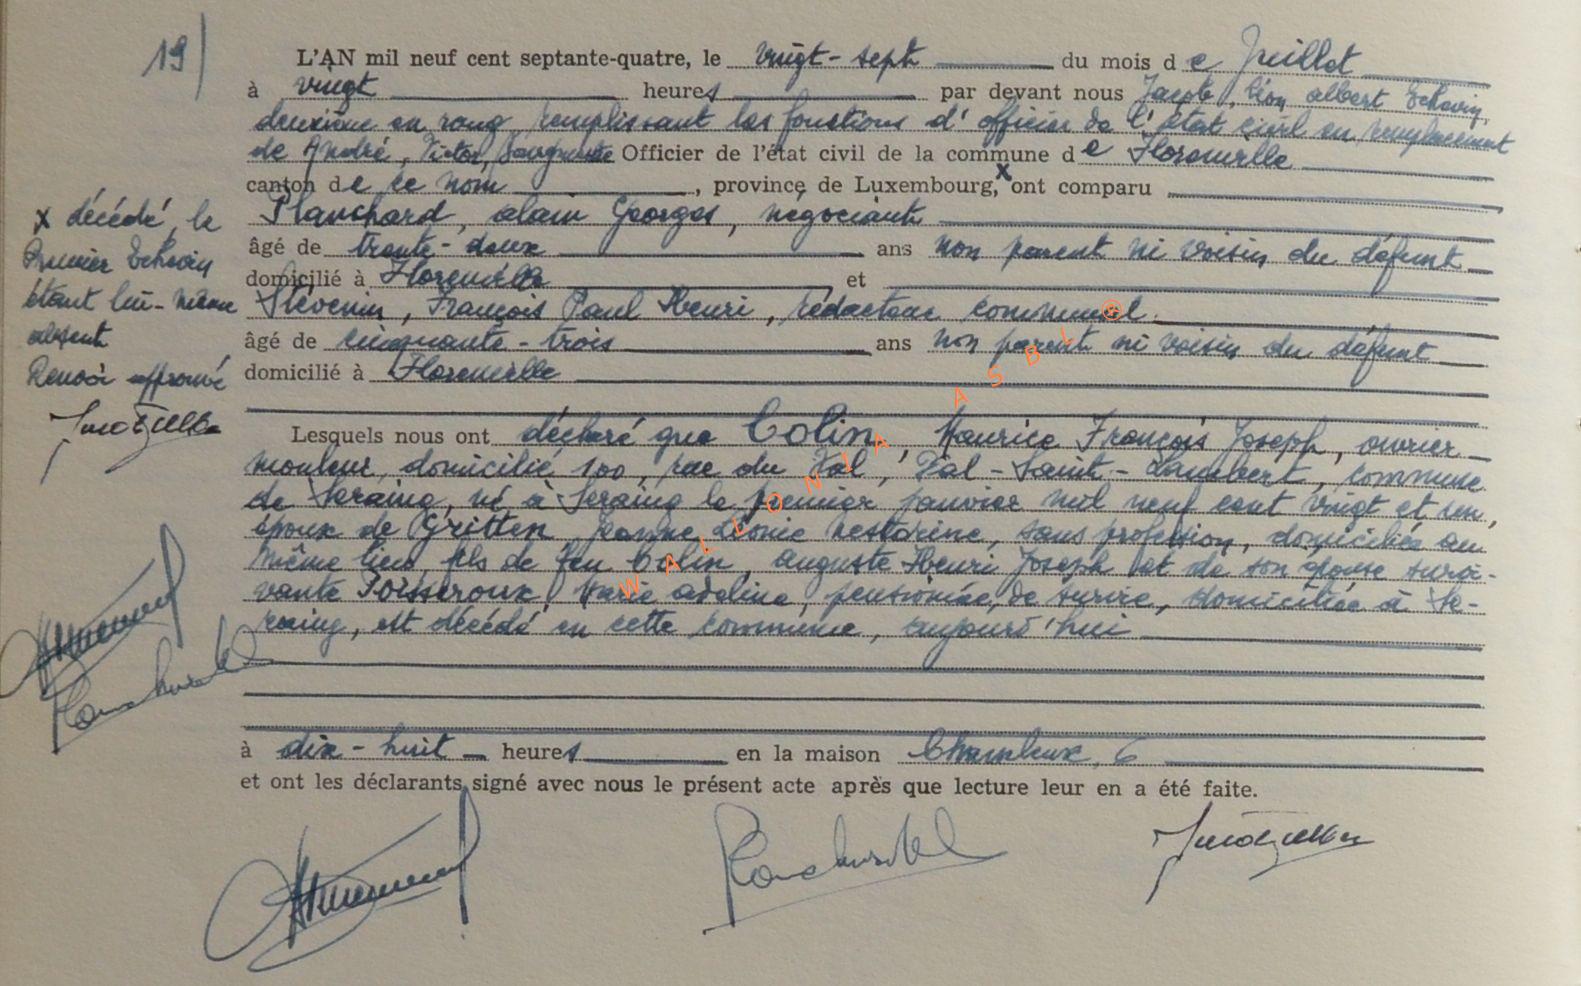 19/
L'AN mil neuf cent septante-quatre, le vingt-sept du mois de Juillet
à vingt heures par devant nous Jacob, Léon Albert Echevin,
deuxième en rang remplissant les fonctions d'officier de l'état civil en remplacement
de André, Victor, Officier de l'état civil de la commune de Florenville
canton de ce nom, province de Luxembourg, x ont comparu
x décédé, le
Premier Echevin
étant lui-même
absent
Renvoi approuvé
Planchard, Alain Georges, négociant
âgé de trente-deux ans non parent ni voisin du défunt
domicilié à Florenville et
Stévenin, François Paul Henri, rédacteur communal.
âgé de cinquante-trois ans non parent ni voisin du défunt
domicilié à Florenville
Lesquels nous ont déclaré que Colin, Maurice François Joseph, ouvrier
mouleur, domicilié 100, rue du Val, Val-Saint-Lambert, commune
de Seraing, né à Seraing le premier janvier mil neuf cent vingt et un,
époux de Gritten Jeanne Léonie Nestorine, sans profession, domiciliée au
même lieu, fils de feu Colin, Auguste Henri Joseph et de son épouse survi-
vante Poisseroux, Marie Adeline, pensionnée de survie, domiciliée à Se-
raing, est décédé en cette commune, aujourd'hui
à dix-huit heures en la maison Chameleux, 6
et ont les déclarants signé avec nous le présent acte après que lecture leur en a été faite.
WALLONIA ASBL ®